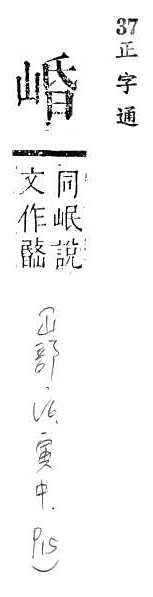 37正字通
崏
同岷說
文作
(山部. 16. 寅中. P15)